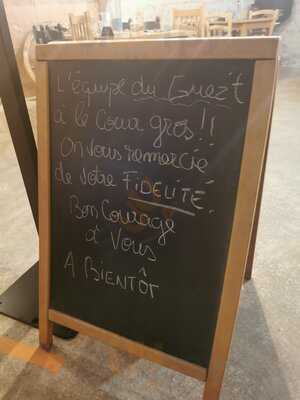 L'équipe du Guez't
à le Coeur gros !!
On vous remercie
de votre FIDELITÉ.
Bon Courage
à Vous
A BIENTÔT